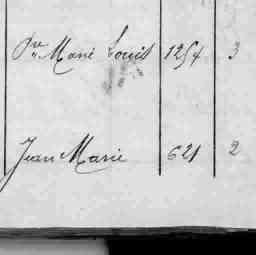 Pre Marie Louis 1254 3
Jean Marie 621 2